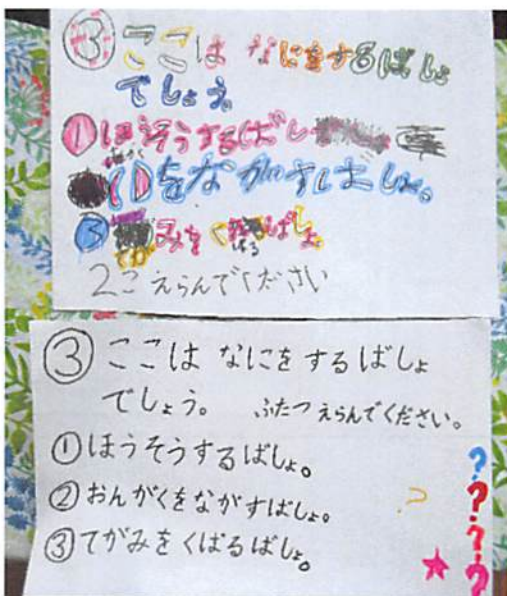 ③ ここは なにをするばしょ
でしょう
① ほうそうするばしょ
をながすばしょ。
③ てがみをくばるばしょ
2こ えらんでください
③ ここは なにをするばしょ
でしょう。 ふたつえらんでください。
① ほうそうするばしょ。
② おんがくをながすばしょ。
③ てがみをくばるばしょ。
?
?
?
?
?